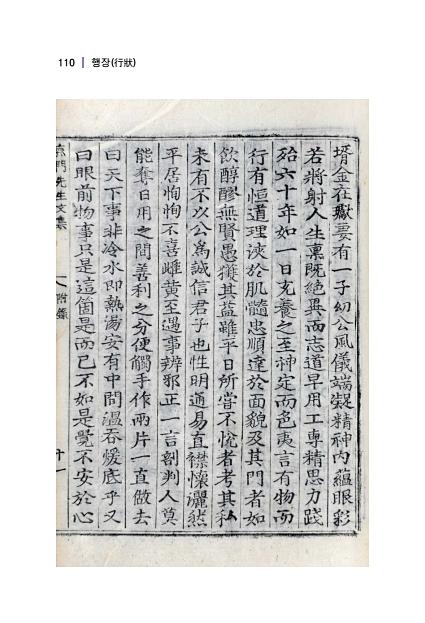 110 | 행장(行狀)
壻金在獻要有一子幼公風儀端凝精神內蘊眼彩
若將射人生稟旣絶異而志道早用工專精思力踐
殆六十年如一日充養之至神定而色夷言有物而
行有恒道理浹於肌髓忠順達於面貌及其門者如
飮醇醪無賢愚獲其益雖平日所嘗不悅者考其私
未有不以公爲誠信君子也性明通易直襟懷灑然
平居恂恂不喜雌黃至遇事辨邪正一言剖判人莫
能奪日用之間善利之分便觸手作兩片一直做去
曰天下事非冷水卽熱湯安有中間溫呑煖底乎又
曰眼前物事只是這箇是而已不如是覺不安於心
門先生文集
附錄
十一